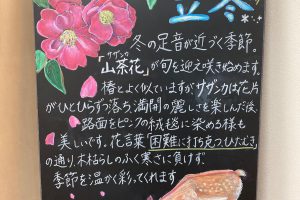 立冬
冬の足音が近づく季節。
サザンカ
「山茶花」が旬を迎え咲きぬめます。
椿とよく似ていますが、サザンカは花片
がひとひらずつ落ち満開の麗しさを楽しんだ後、
路面をピンクの絨毯に染める様も
美しいです。花言葉「困難に打ち克つ、ひたむき」
の通り、木枯らしのふく寒さに負けず、
季節を温かく彩ってくれます